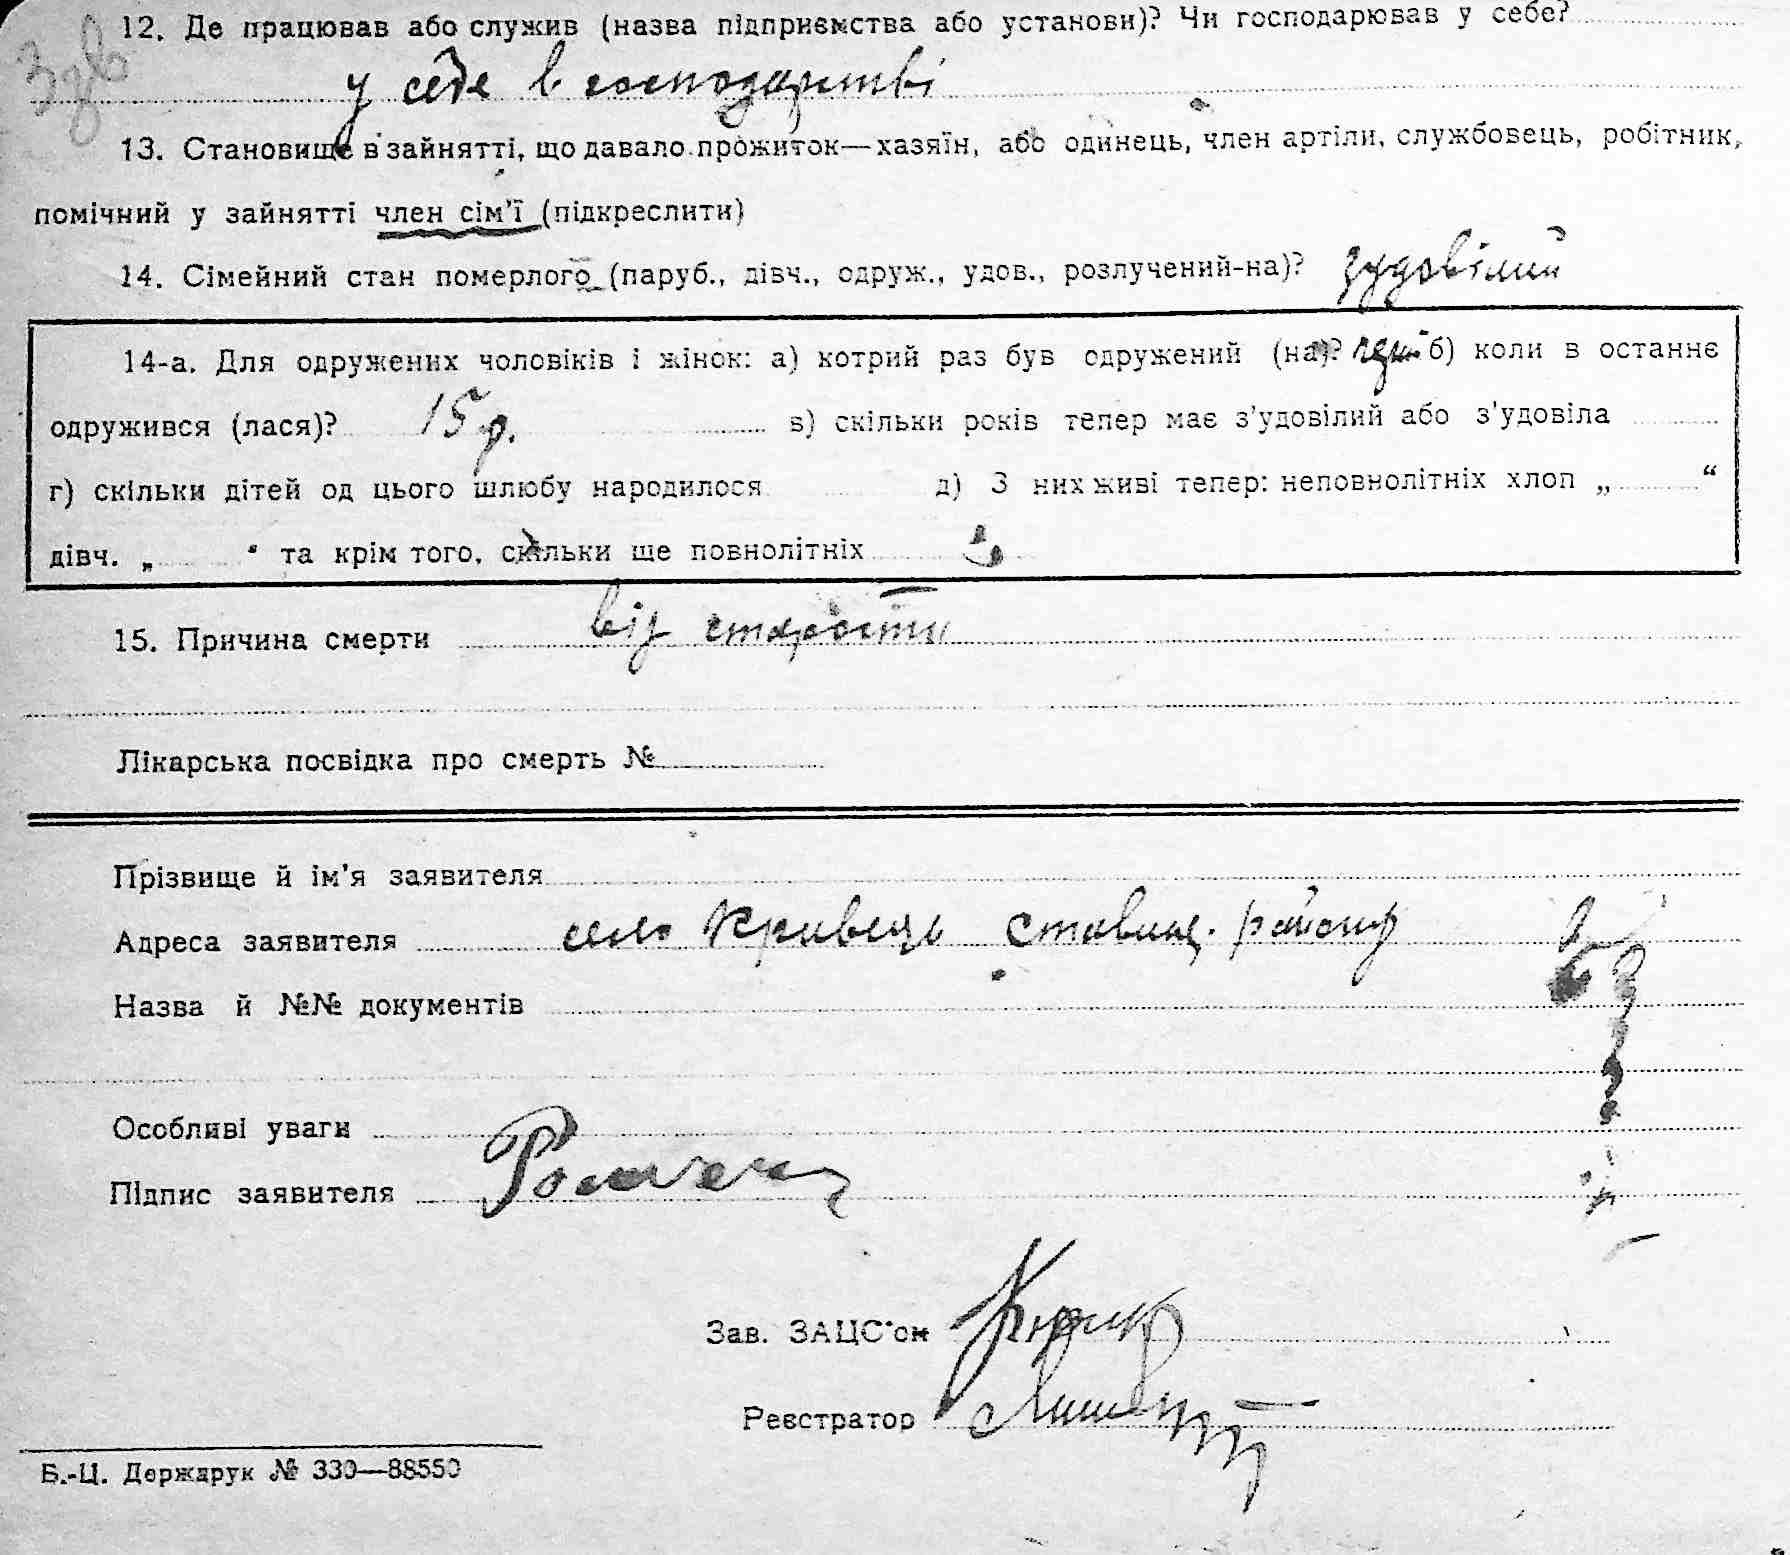 12. Де працював або служив (назва підприємства або установи)? Чи господарював у себе?
у себе в господарстві
13. Становище в зайнятті, що давало прожиток—хазяїн, або одинець, член артіли, службовець, робітник,
помічний у зайнятті член сім'ї (підкреслити)
14. Сімейний стан померлого (паруб., дівч., одруж., удов., розлучений-на)? зудовілий
14-а. Для одружених чоловіків і жінок: а) котрий раз був одружений (на)? б) коли в останнє
одружився (лася)? 15 р. в) скільки років тепер має з'удовілий або з'удовіла
г) скільки дітей од цього шлюбу народилося д) З них живі тепер: неповнолітніх хлоп „ “
дівч. „ “ та крім того, скільки ще повнолітніх
15. Причина смерти від старости
Лікарська посвідка про смерть №
Прізвище й ім'я заявителя
Адреса заявителя село Кривець Ставищ. району
Назва й №№ документів
Особливі уваги
Підпис заявителя
Зав. ЗАЦС'ом
Реєстратор
Б.-Ц. Держдрук № 330—88550